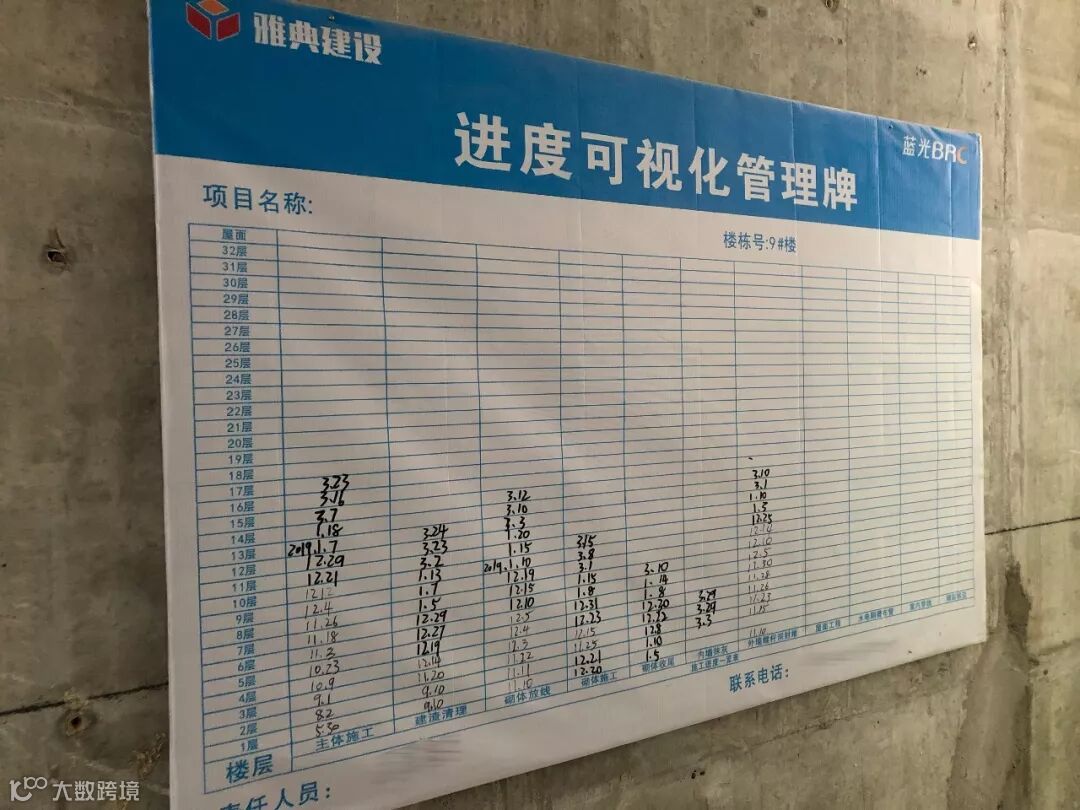 雅典建设
蓝光BRC
进度可视化管理牌
项目名称:
楼栋号:9#楼
屋面
32层
31层
30层
29层
28层
27层
26层
25层
24层
23层
22层
21层
20层
19层
18层
17层 3.23 3.10
16层 3.16 3.12 3.1
15层 3.7 3.10 1.10
14层 1.18 3.24 3.3 1.5
13层 2019.1.7 3.23 1.20 3.15 12.25
12层 12.29 3.2 1.15 3.8 12.14
11层 12.21 1.13 2019.1.10 3.1 3.10 12.10
10层 12.12 1.7 12.19 1.15 1.14 12.5
9层 12.4 1.5 12.15 1.8 1.8 3.29 11.30
8层 11.26 12.29 12.10 12.31 12.30 3.29 11.28
7层 11.18 12.27 12.5 12.23 12.22 3.3 11.26
6层 11.3 12.19 12.4 12.15 12.8 11.23
5层 10.23 12.14 12.3 11.25 1.10 11.15
4层 10.9 11.20 11.22 12.21 1.5
3层 9.1 9.10 11.11 12.20 11.10
2层 8.2 9.10 11.10
1层 5.30
楼层 主体施工 建渣清理 砌体放线 砌体施工 砌体收尾 内墙抹灰 施工进度一览表 屋面工程
责任人员:
联系电话:
大数跨境